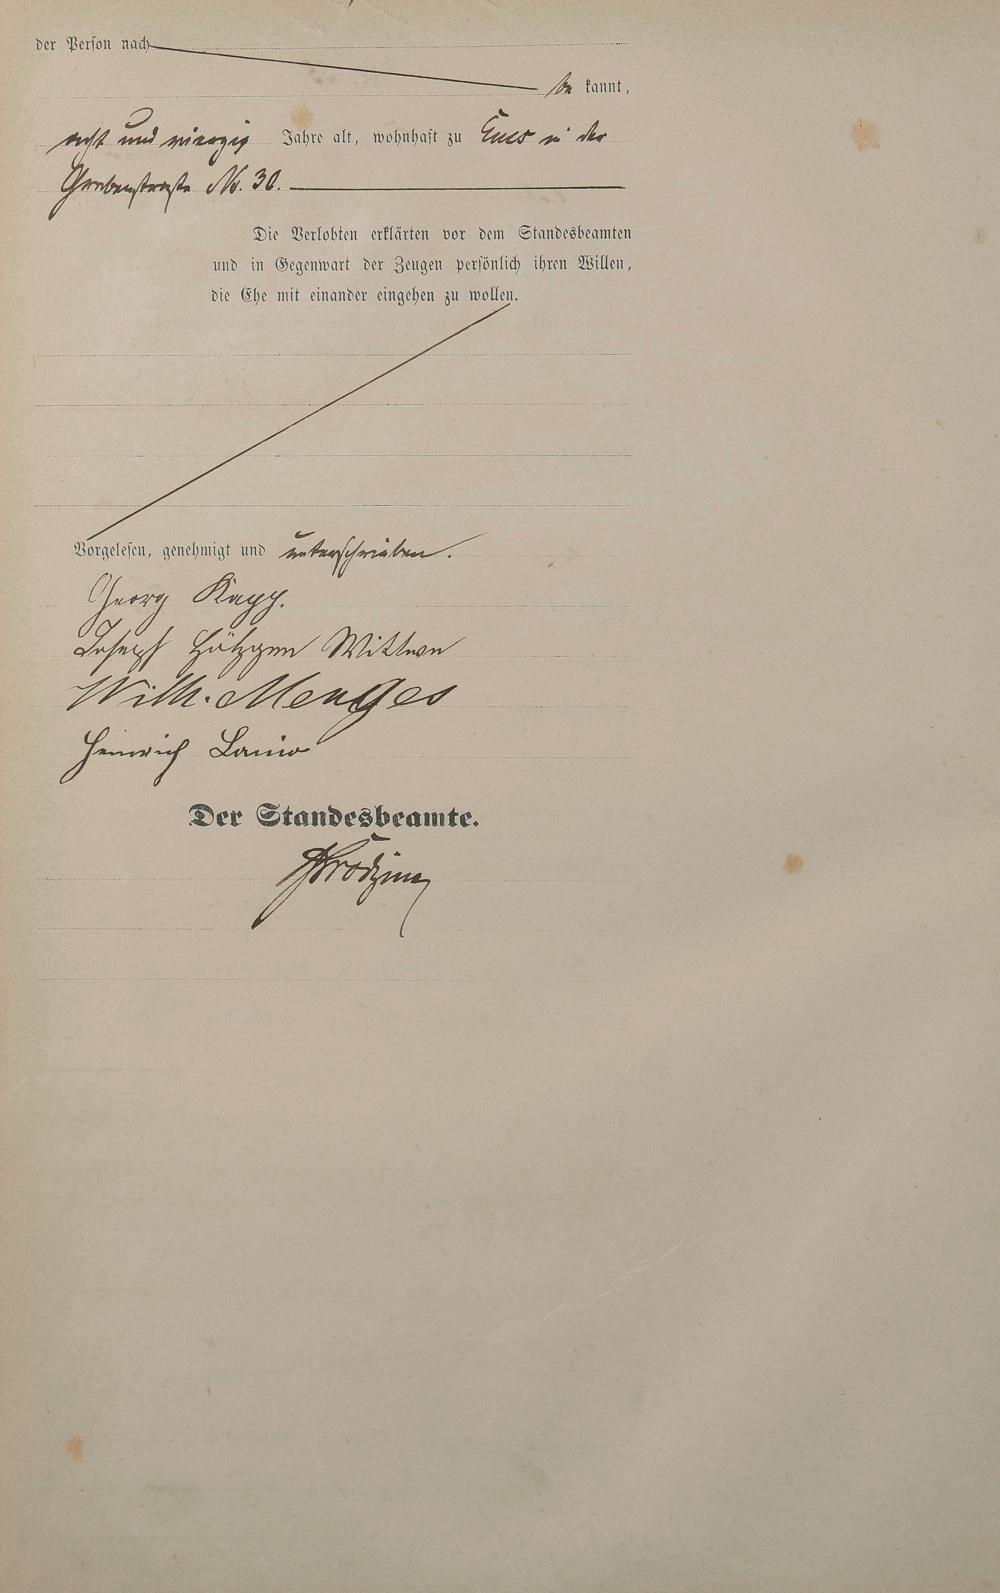 der Person nach
be kannt,
acht und vierzig Jahre alt, wohnhaft zu Ems in der
Grabenstraße No. 30.
Die Verlobten erklärten vor dem Standesbeamten
und in Gegenwart der Zeugen persönlich ihren Willen,
die Ehe mit einander eingehen zu wollen.
Vorgelesen, genehmigt und unterschrieben.
Georg Kapp.
Joseph Hötzgen Wittwe
Wilh. Menges
Heinrich Lanio
Der Standesbeamte.